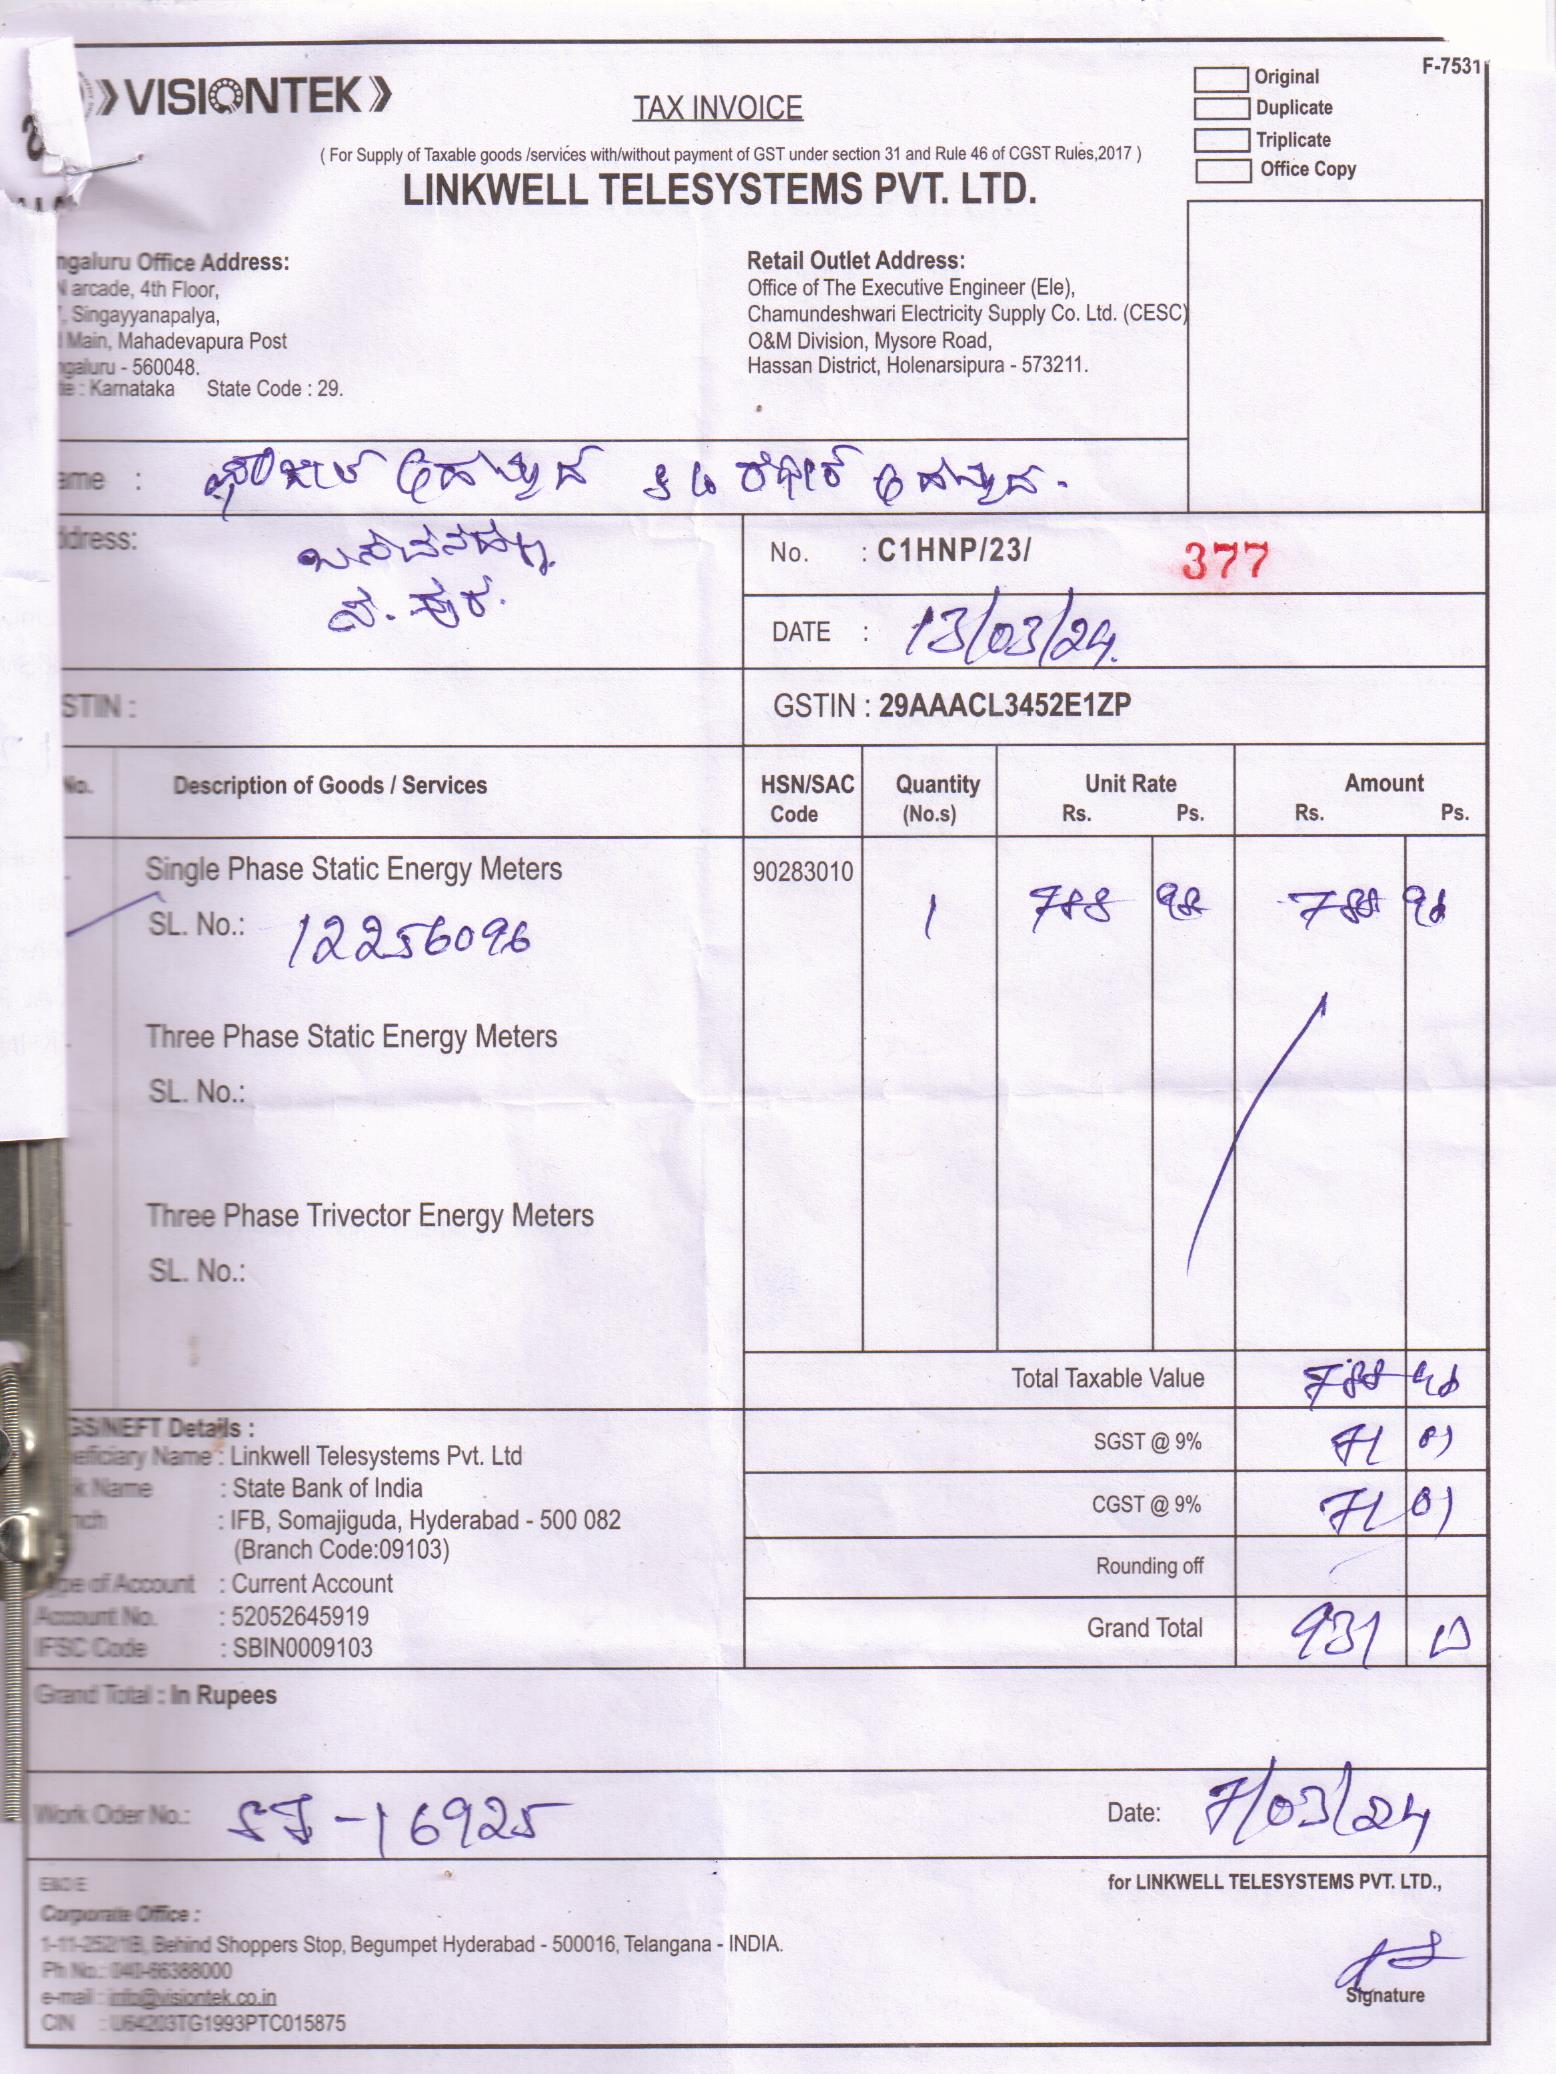 VISIONTEK
TAX INVOICE
F-7531
Original
Duplicate
Triplicate
Office Copy
( For Supply of Taxable goods /services with/without payment of GST under section 31 and Rule 46 of CGST Rules,2017 )
LINKWELL TELESYSTEMS PVT. LTD.
Office Address:
arcade, 4th Floor,
Singayyanapalya,
Main, Mahadevapura Post
- 560048.
: Karnataka State Code : 29.
Retail Outlet Address:
Office of The Executive Engineer (Ele),
Chamundeshwari Electricity Supply Co. Ltd. (CESC)
O&M Division, Mysore Road,
Hassan District, Holenarsipura - 573211.
:
No. : C1HNP/23/ 377
DATE : 13/03/24.
GSTIN : 29AAACL3452E1ZP
No. Description of Goods / Services HSN/SAC Code Quantity (No.s) Unit Rate Rs. Ps. Amount Rs. Ps.
Single Phase Static Energy Meters 90283010
SL. No.: 12256096 1 788 98 788 98
Three Phase Static Energy Meters
SL. No.:
Three Phase Trivector Energy Meters
SL. No.:
Total Taxable Value 788 98
SGST @ 9% 71 01
CGST @ 9% 71 01
Rounding off
Grand Total 931 00
GS/NEFT Details :
Name : Linkwell Telesystems Pvt. Ltd
Name : State Bank of India
: IFB, Somajiguda, Hyderabad - 500 082
(Branch Code:09103)
of Account : Current Account
Account No. : 52052645919
IFSC Code : SBIN0009103
Grand Total : In Rupees
Work Oder No.: SJ-16925
Date: 7/03/24
for LINKWELL TELESYSTEMS PVT. LTD.,
E&OE
Corporate Office :
1-11-252/1B, Behind Shoppers Stop, Begumpet Hyderabad - 500016, Telangana - INDIA.
Ph No.: 040-66388000
e-mail : info@visiontek.co.in
CIN : U64203TG1993PTC015875
Signature